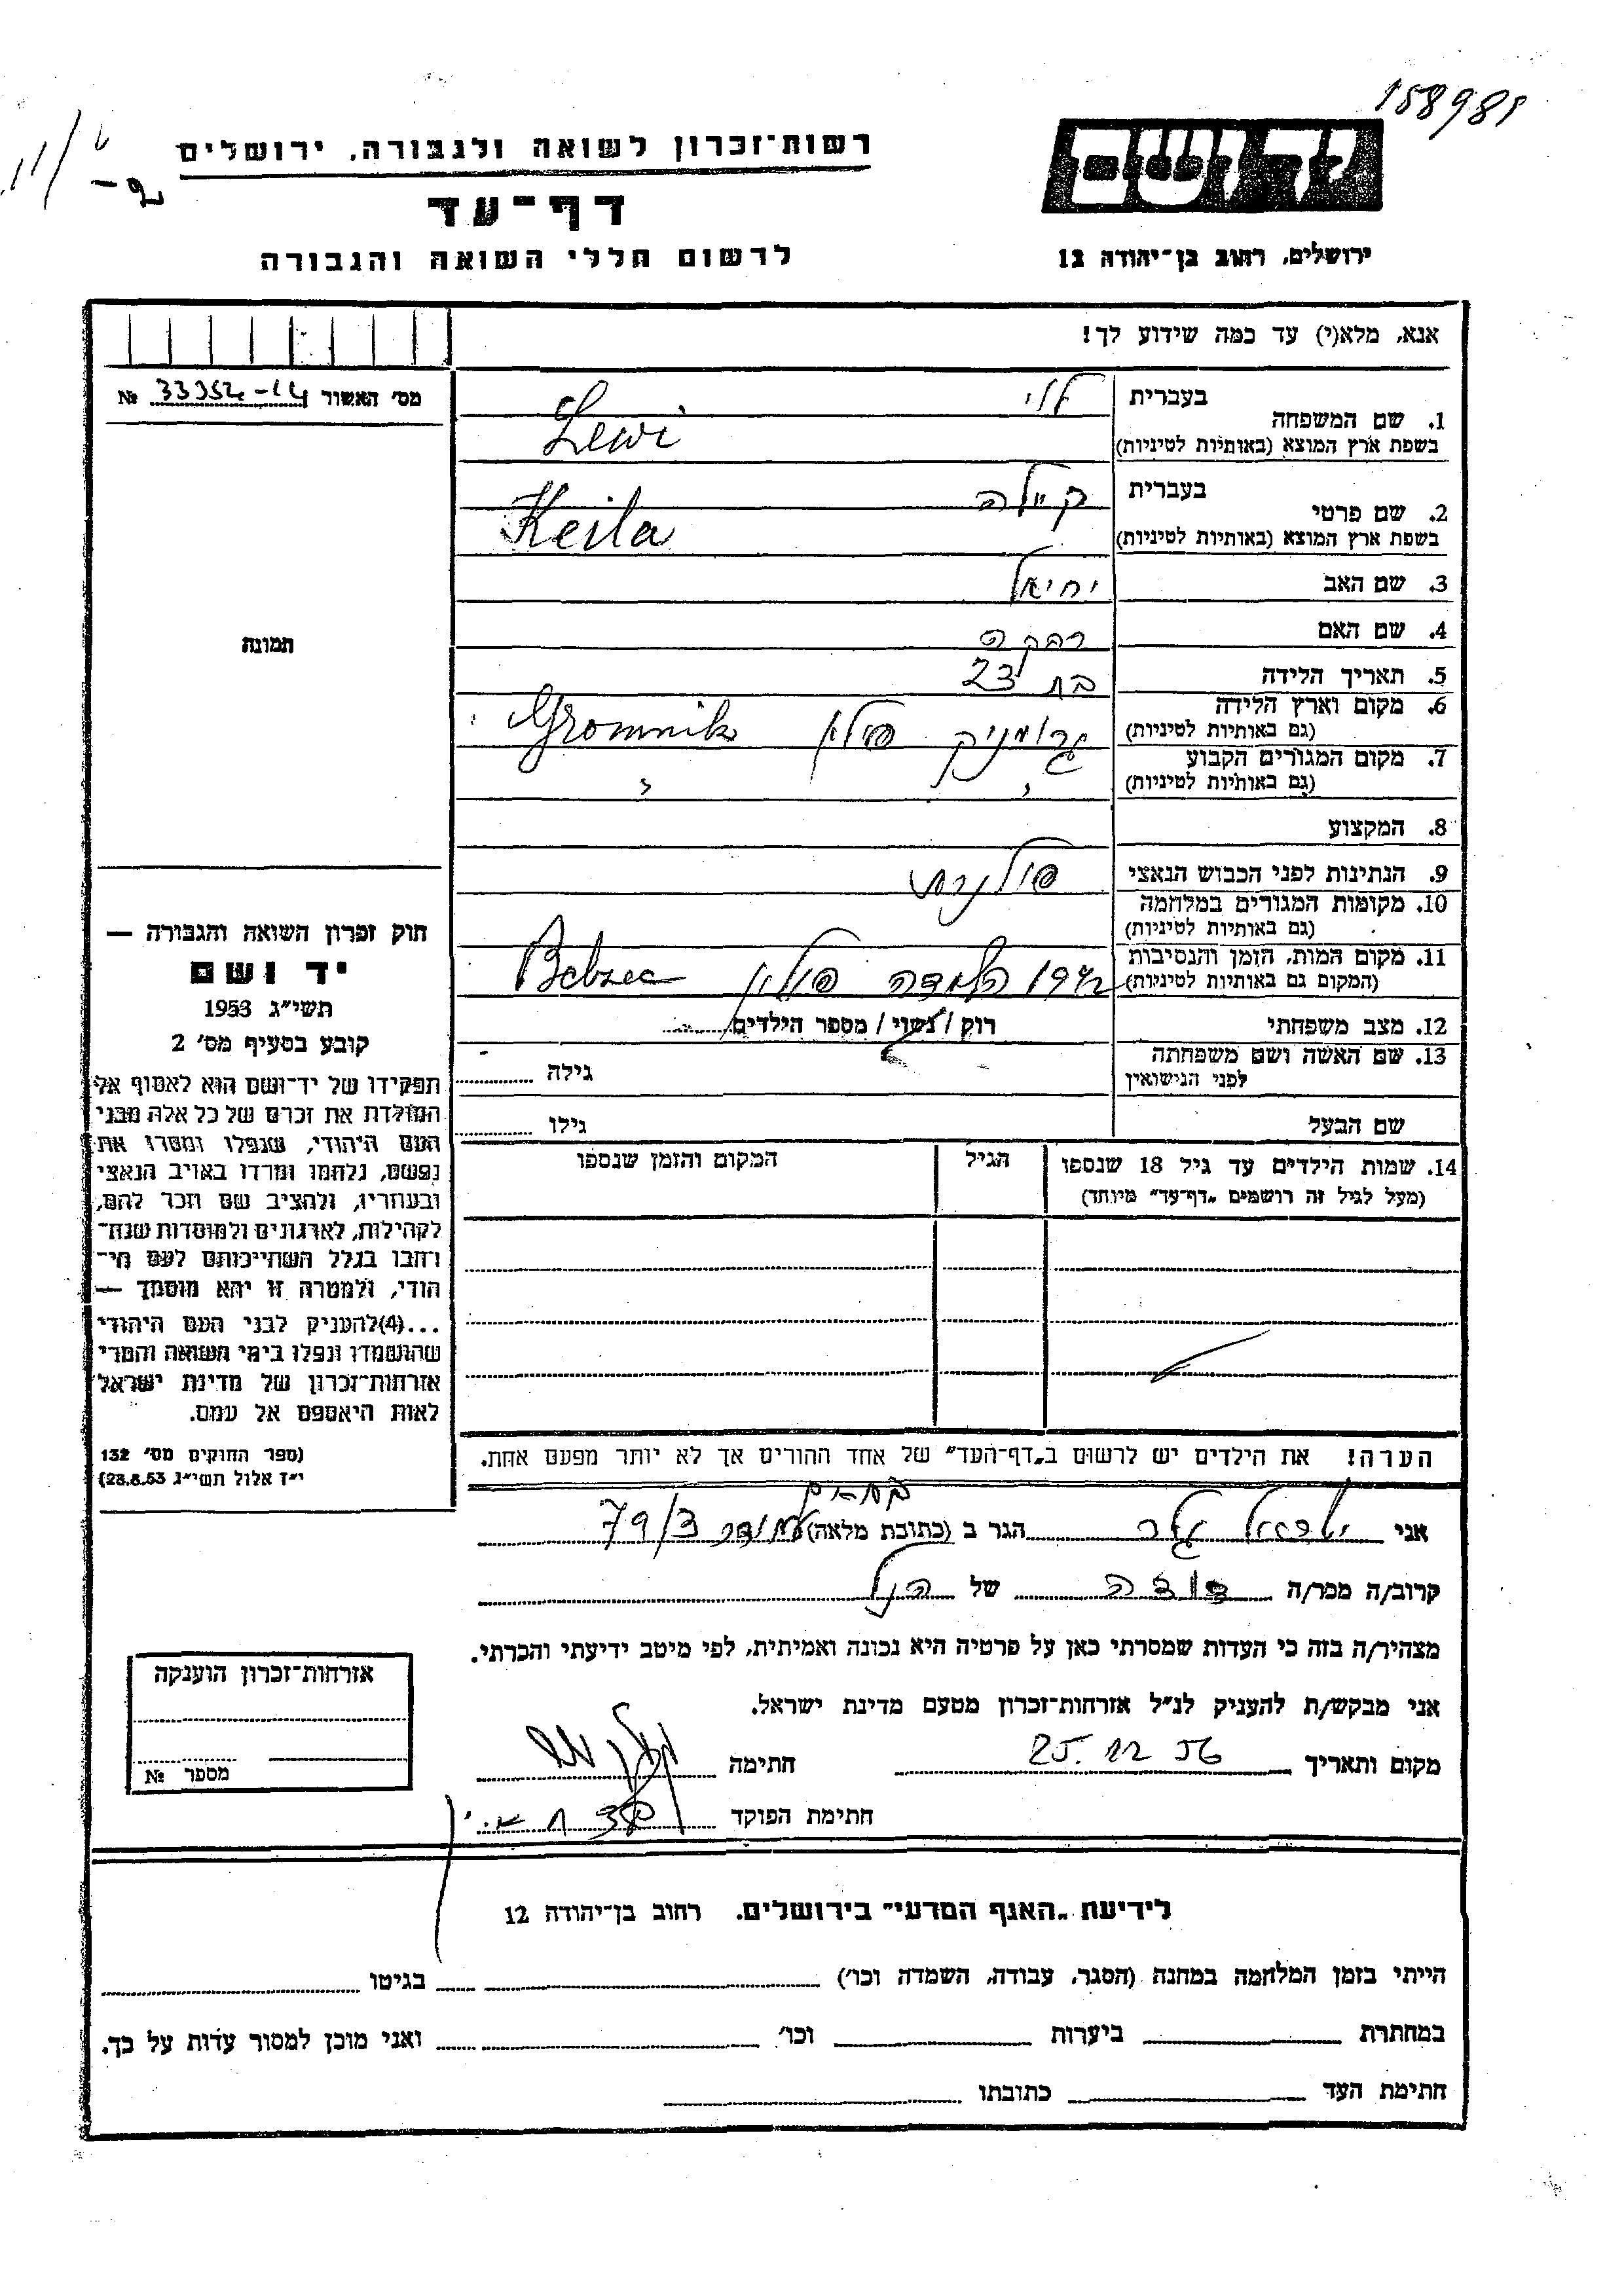 158985
רשות־זכרון לשואה ולגבורה, ירושלים
יד ושם
דף־עד
לרשום חללי השואה והגבורה
ירושלים, רחוב בן־יהודה 12
אנא, מלא(י) עד כמה שידוע לך!
מס׳ האשור 33352-14 №
1. שם המשפחה
בעברית לוי
בשפת ארץ המוצא (באותיות לטיניות) Lewi
2. שם פרטי
בעברית קיילה
בשפת ארץ המוצא (באותיות לטיניות) Keila
3. שם האב יחיאל
4. שם האם
5. תאריך הלידה בת 23
6. מקום וארץ הלידה (גם באותיות לטיניות) גרומניק פולין Gromnik
7. מקום המגורים הקבוע (גם באותיות לטיניות) " "
8. המקצוע
9. הנתינות לפני הכבוש הנאצי פולנית
10. מקומות המגורים במלחמה (גם באותיות לטיניות)
11. מקום המות, הזמן והנסיבות (המקום גם באותיות לטיניות) 1942 פולין Belzec
12. מצב משפחתי רוק / נשוי / מספר הילדים
13. שם האשה ושם משפחתה לפני הנישואין גילה
שם הבעל גילו
14. שמות הילדים עד גיל 18 שנספו
(מעל לגיל זה רושמים „דף־עד״ מיוחד)
הגיל
המקום והזמן שנספו
הערה! את הילדים יש לרשום ב„דף־העד״ של אחד ההורים אך לא יותר מפעם אחת.
תמונה
חוק זכרון השואה והגבורה —
יד ושם
תשי״ג 1953
קובע בסעיף מס׳ 2
תפקידו של יד־ושם הוא לאסוף אל
המולדת את זכרם של כל אלה מבני
העם היהודי, שנפלו ומסרו את
נפשם, נלחמו ומרדו באויב הנאצי
ובעוזריו, ולהציב שם וזכר להם,
לקהילות, לארגונים ולמוסדות שנח־
רחבו בגלל השתייכותם לעם הי־
הודי, ולמטרה זו יהא מוסמך —
...(4)להעניק לבני העם היהודי
שהושמדו ונפלו בימי השואה והמרי
אזרחות־זכרון של מדינת ישראל
לאות היאספם אל עמם.
(ספר החוקים מס׳ 132
י״ז אלול תשי״ג 28.8.53)
אני ישראל הגר ב (כתובת מלאה) 79/3
קרוב/ה מכר/ה דודה של הנ"ל
מצהיר/ה בזה כי העדות שמסרתי כאן על פרטיה היא נכונה ואמיתית, לפי מיטב ידיעתי והכרתי.
אני מבקש/ת להעניק לנ״ל אזרחות־זכרון מטעם מדינת ישראל.
מקום ותאריך 25.12.56 חתימה
חתימת הפוקד
אזרחות־זכרון הוענקה
מספר №
לידיעת „האגף המדעי״ בירושלים. רחוב בן־יהודה 12
הייתי בזמן המלחמה במחנה (הסגר, עבודה, השמדה וכו׳) בגיטו
במחתרת ביערות וכו׳ ואני מוכן למסור עדות על כך.
חתימת העד כתובתו